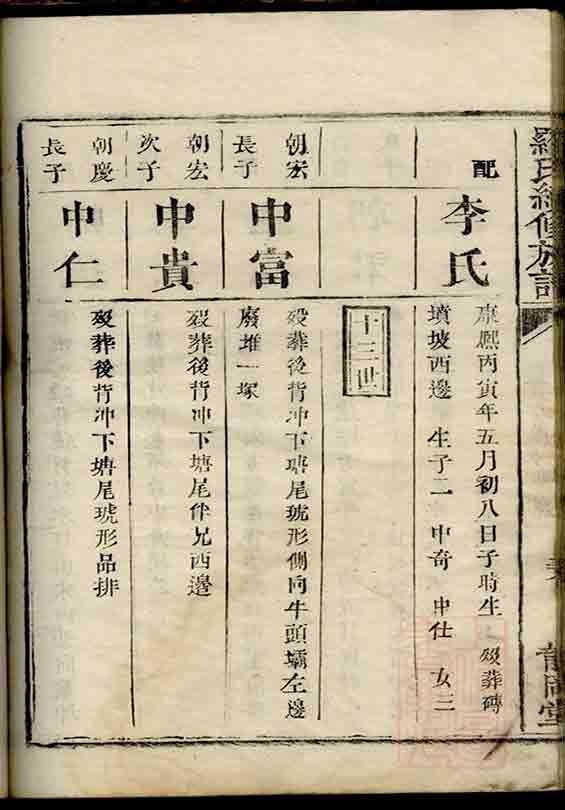 羅氏續修族譜
龍岡堂
配
李氏
康熈丙寅年五月初八日子時生 歿葬磚
墳坡西邊 生子二 中奇 中仕 女三
十三世
朝宏
長子
中富
歿葬後背冲下塘尾琥形側同牛頭壩左邊
廢堆一塚
朝宏
次子
中貴
歿葬後背冲下塘尾伴兄西邊
朝慶
長子
中仁
歿葬後背冲下塘尾琥形品排